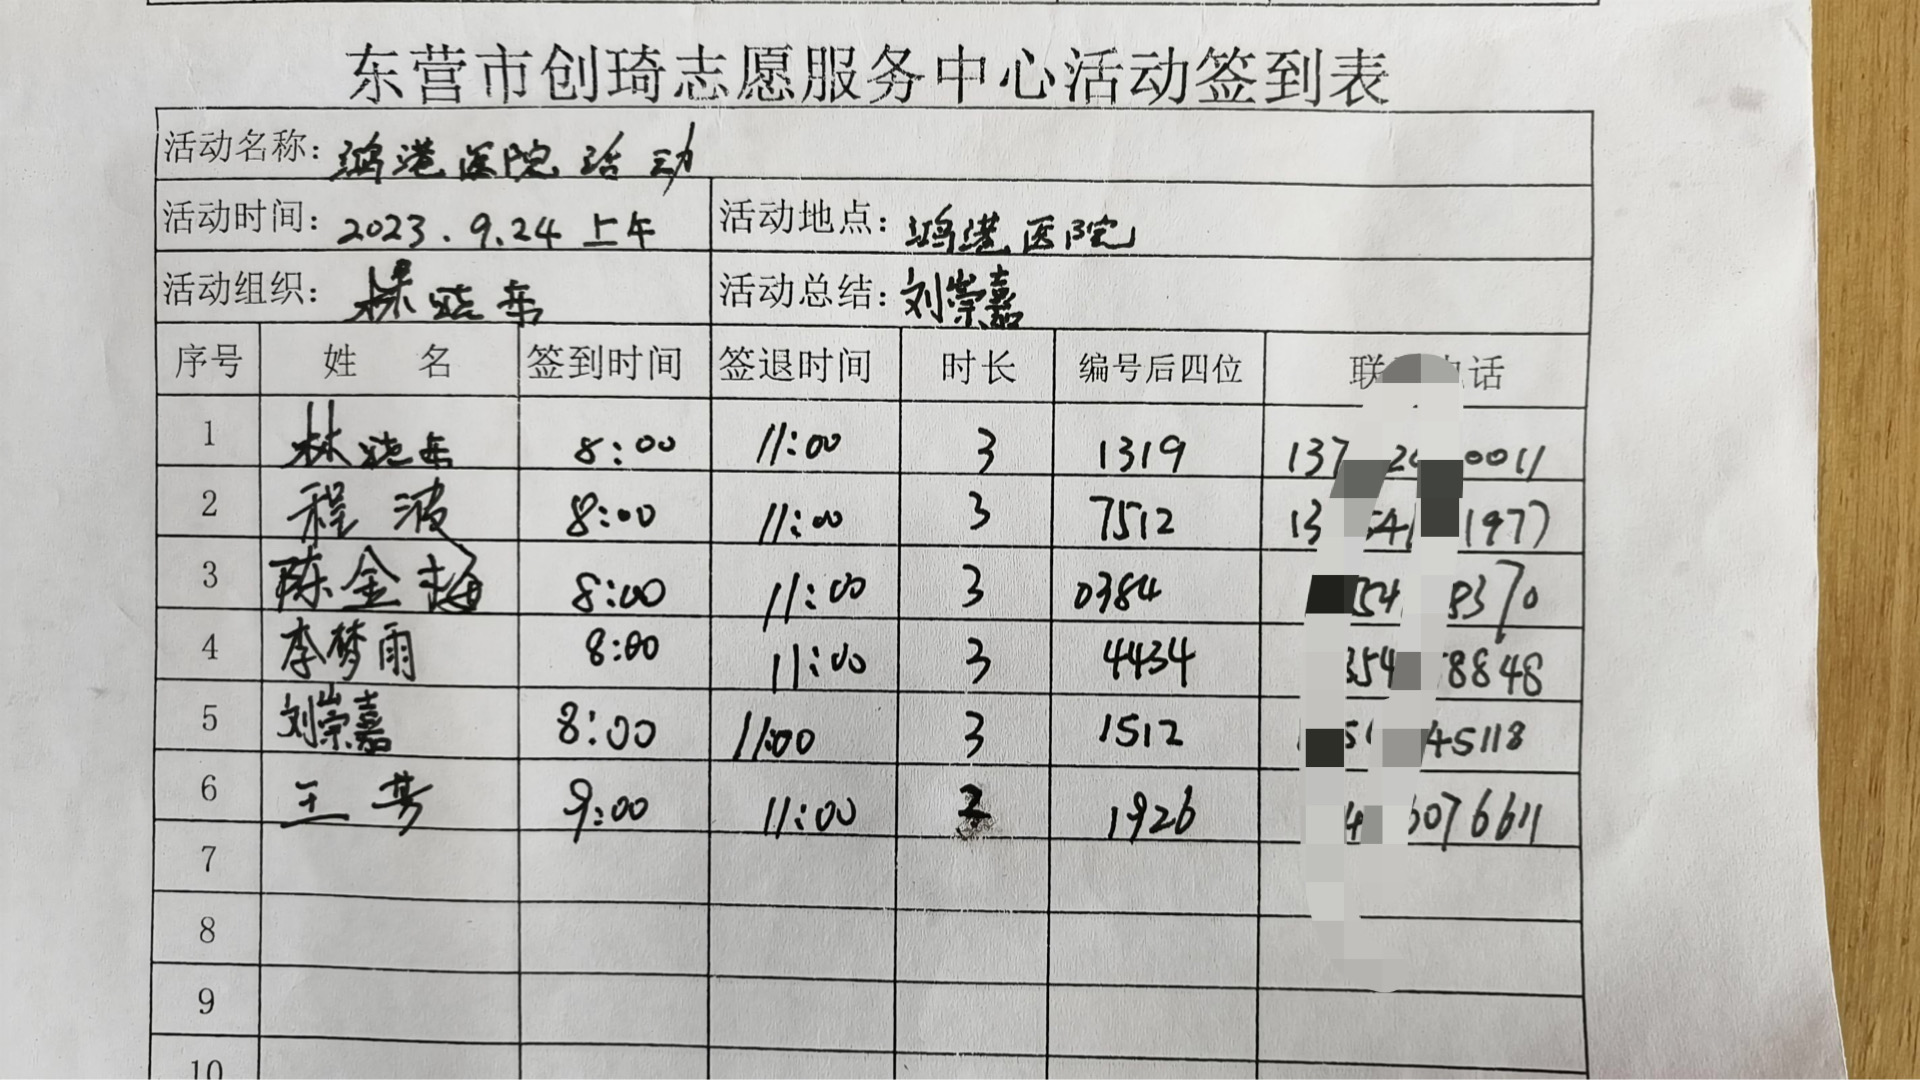 东营市创琦志愿服务中心活动签到表
活动名称：鸿港医院活动
活动时间：2023.9.24 上午 活动地点：鸿港医院
活动组织：林晓东 活动总结：刘崇嘉
序号 姓 名 签到时间 签退时间 时长 编号后四位 联 电话
1 林晓东 8:00 11:00 3 1319 137 2 0011
2 程波 8:00 11:00 3 7512 13 54 1977
3 陈金梅 8:00 11:00 3 0384 54 8370
4 李梦雨 8:00 11:00 3 4434 354 8848
5 刘崇嘉 8:00 11:00 3 1512 5 45118
6 王 9:00 11:00 2 1926 4 6076611
7
8
9
10